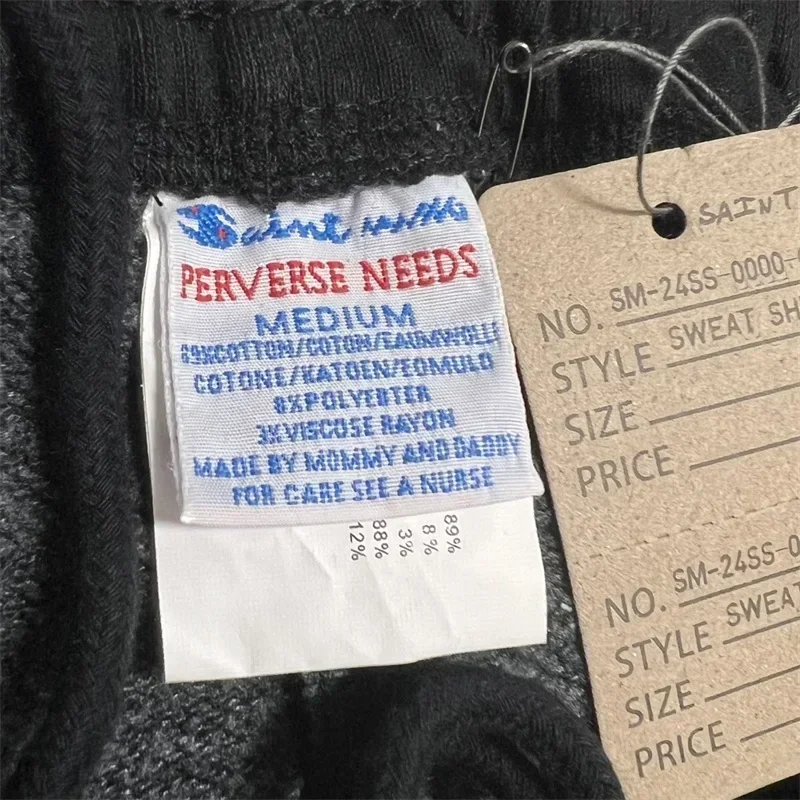 Saint Mxxxxxx
PERVERSE NEEDS
MEDIUM
89%COTTON/COTON/BAUMWOLLE
COTONE/KATOEN/EOMULO
8%POLYERTER
3%VISCOSE RAYON
MADE BY MOMMY AND DADDY
FOR CARE SEE A NURSE
89%
8%
3%
88%
12%
SAINT
NO. SM-24SS-0000-
STYLE SWEAT SH
SIZE
PRICE
NO. SM-24SS-0
STYLE SWEAT
SIZE
PRICE